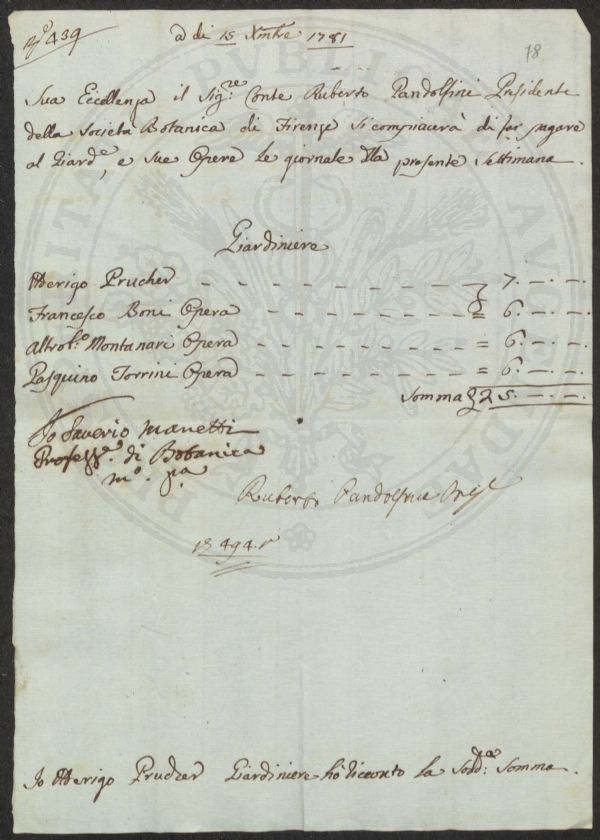 N.º 439
a di 15 Xmbre 1781
78
Sua Eccellenza il Sig.re Conte Ruberto Pandolfini Presidente
della Società Botanica di Firenze si compiacerà di far pagare
al Giard.e, e sue Opere le giornate dlla presente Settimana.
Giardiniere
Aderigo Prucher - - - - - - - - - - 7. -. -.
Francesco Boni Opera - - - - - - - - = 6. -. -.
Altro Montanari Opera - - - - - - - = 6. -. -.
Pasquino Torrini Opera - - - - - - - = 6. -. -.
Somma 25. -. -.
Io Saverio Manetti
Profess.e di Botanica
m.o p.a
Ruberto Pandolfini Presl
494.
Io Aderigo Prucher Giardiniere hò riceuto la Sodd.a Somma.
PUBLICAE